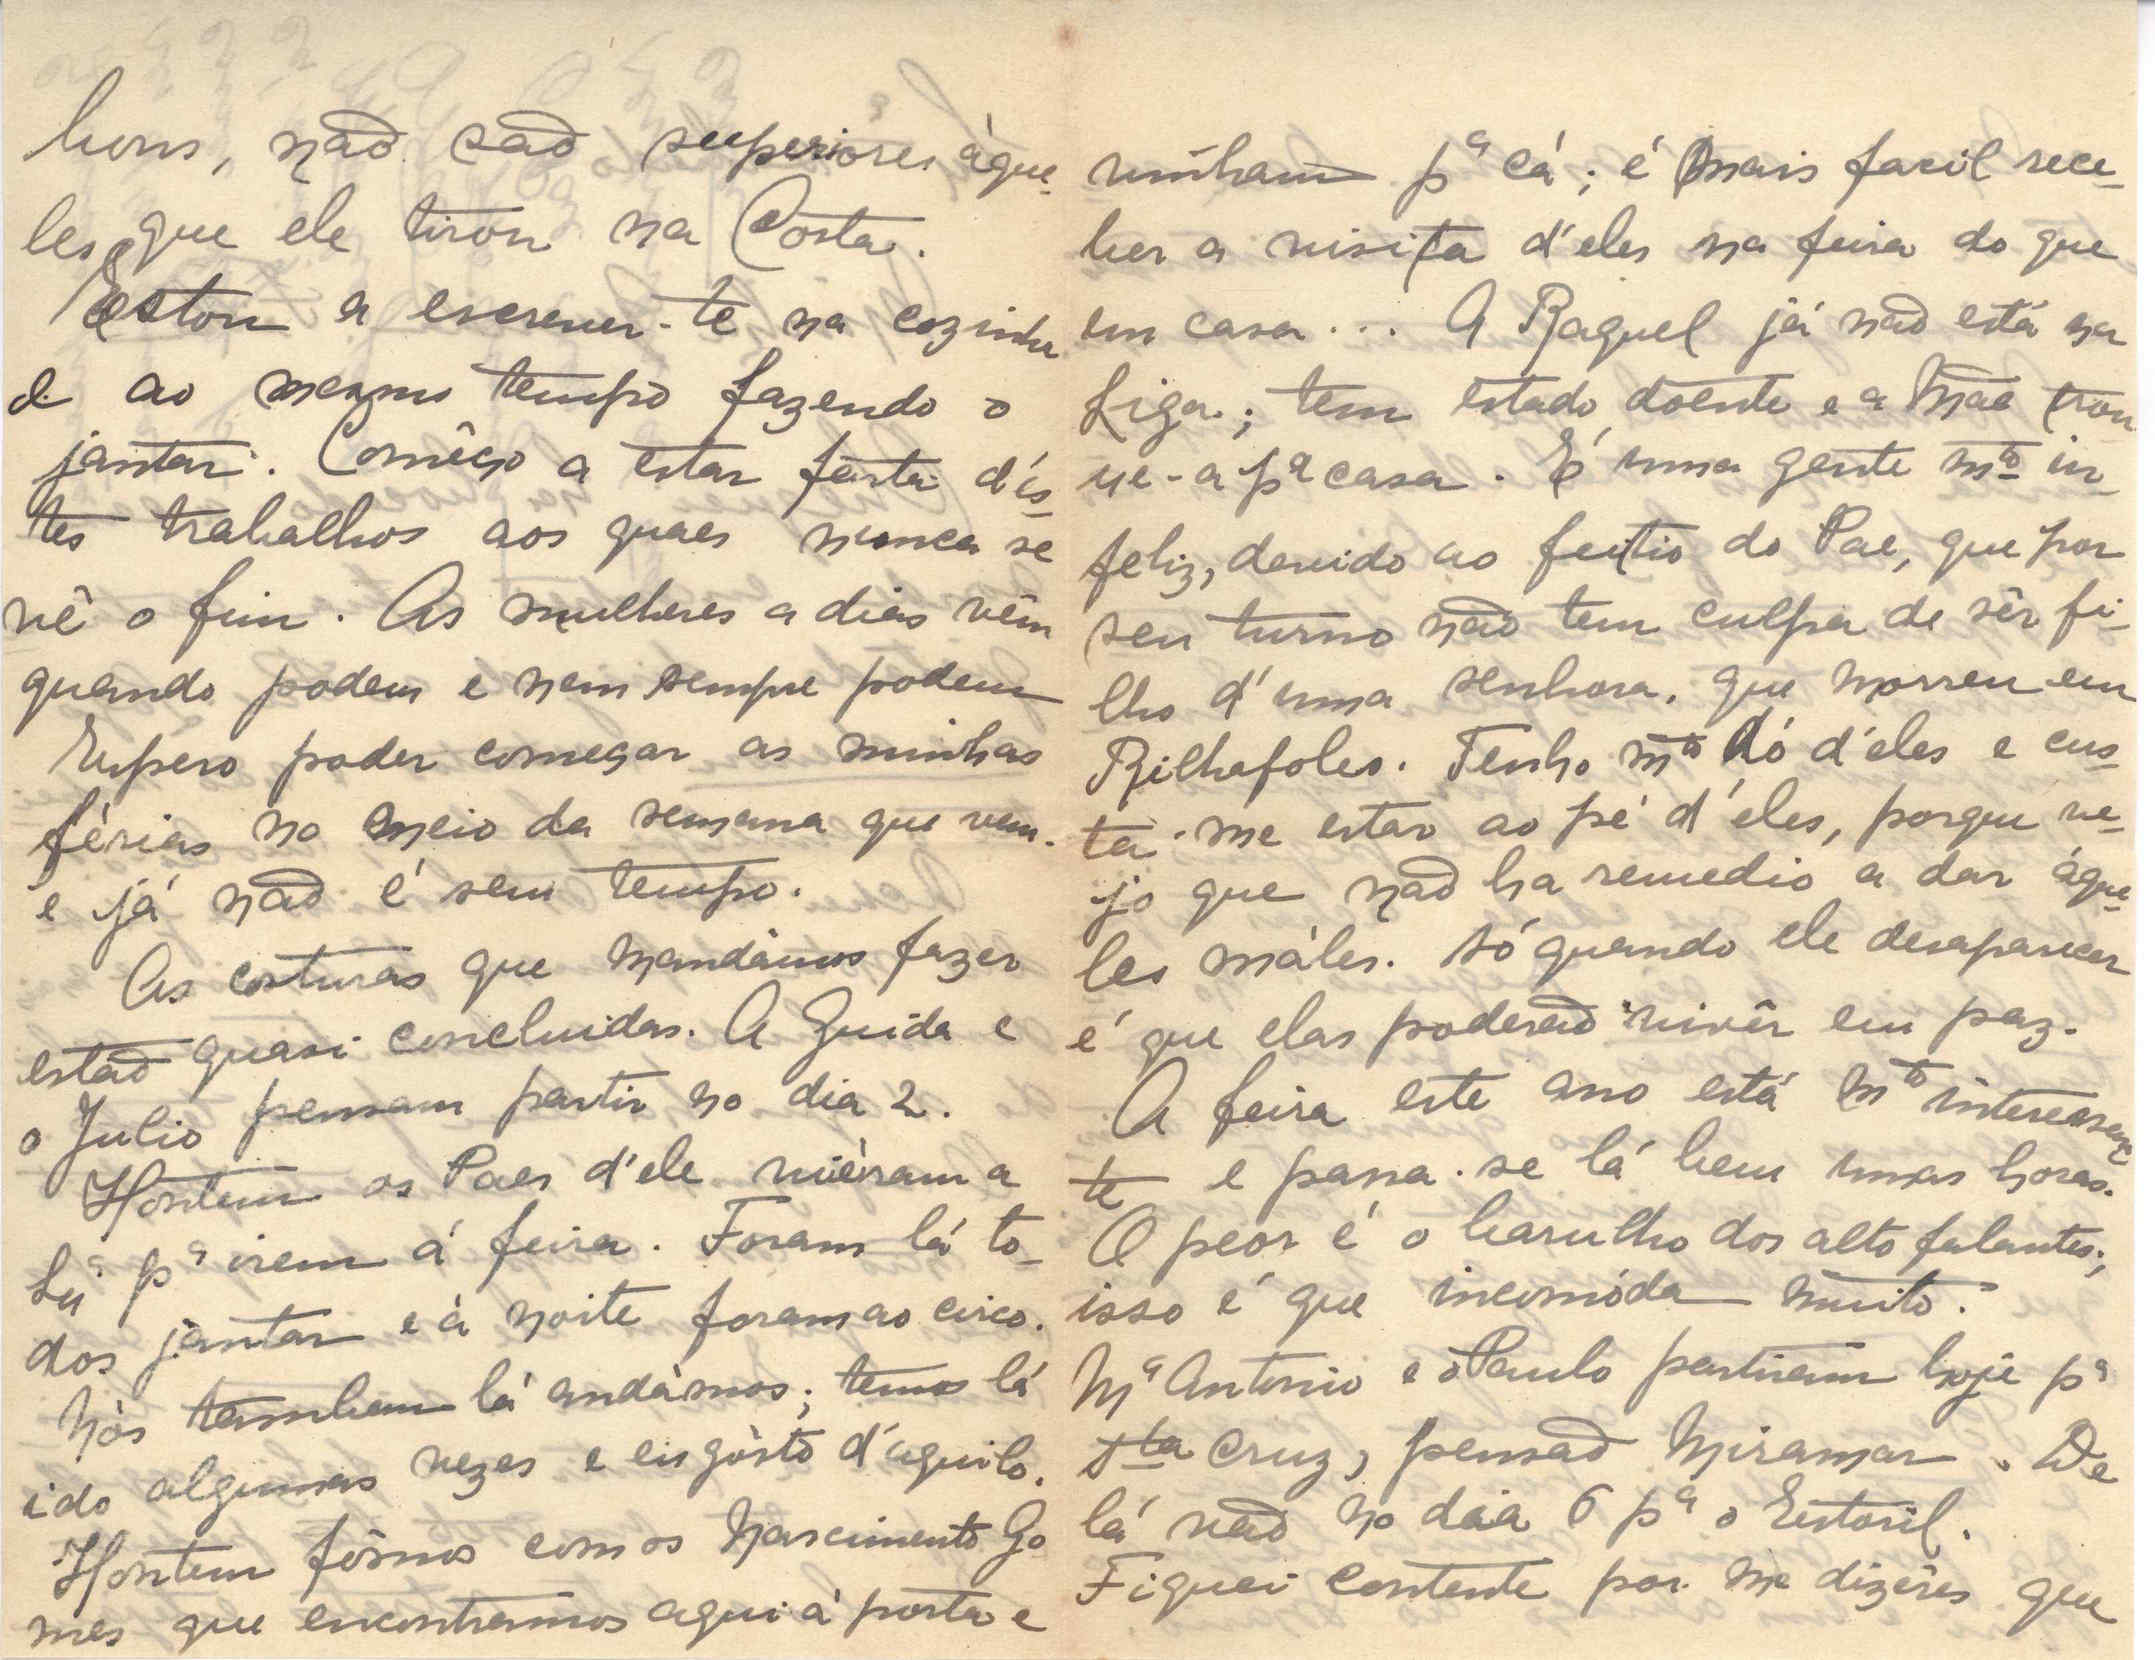 bons, não são superiores àque-
les que ele tirou na Costa.
Estou a escrever-te na cozinha
e ao mesmo tempo fazendo o
jantar. Comêço a estar farta d'ês-
tes trabalhos aos quaes nunca se
vê o fim. As mulheres a dias vêm
quando podem e nem sempre podem
Espero poder começar as minhas
férias no meio da semana que vem.
e já não é sem tempo.
As costuras que mandámos fazer
estão quasi concluidas. A Guida e
o Julio pensam partir no dia 2.
Hontem os Paes d'ele viéram a
Lxª pª irem á feira. Foram lá to-
dos jantar e à noite foram ao circo.
Nós tambem lá andámos; temos lá
ido algumas vezes e eu gósto d'aquilo.
Hontem fômos com os Nascimento Go
mes que encontramos aqui á porta e
vinham pª cá; é mais facil rece-
ber a visita d'eles na feira do que
em casa... A Raquel já não está na
Liga; tem estado doente e a Mãe trou
xe-a pª casa. É uma gente mtº in-
feliz, devido ao feitio do Pae, que por
seu turno não tem culpa de sêr fi-
lho d'uma senhora, que morreu em
Rilhafoles. Tenho mtº dó d'eles e cus-
ta-me estar ao pé d'éles, porque ve-
jo que não ha remedio a dar áque-
les máles. Só quando ele desaparecer
é que elas poderão vivêr em paz.
A feira este ano está mtº interessan
te e passa-se lá bem umas horas.
O peor é o barulho dos alto falantes;
isso é que incomóda muito.
Mª Antonio e o Paulo partiram hoje pª
Sta Cruz, pensão Miramar. De
lá vão no dia 6 pª o Estoril.
Fiquei contente por me dizêres que